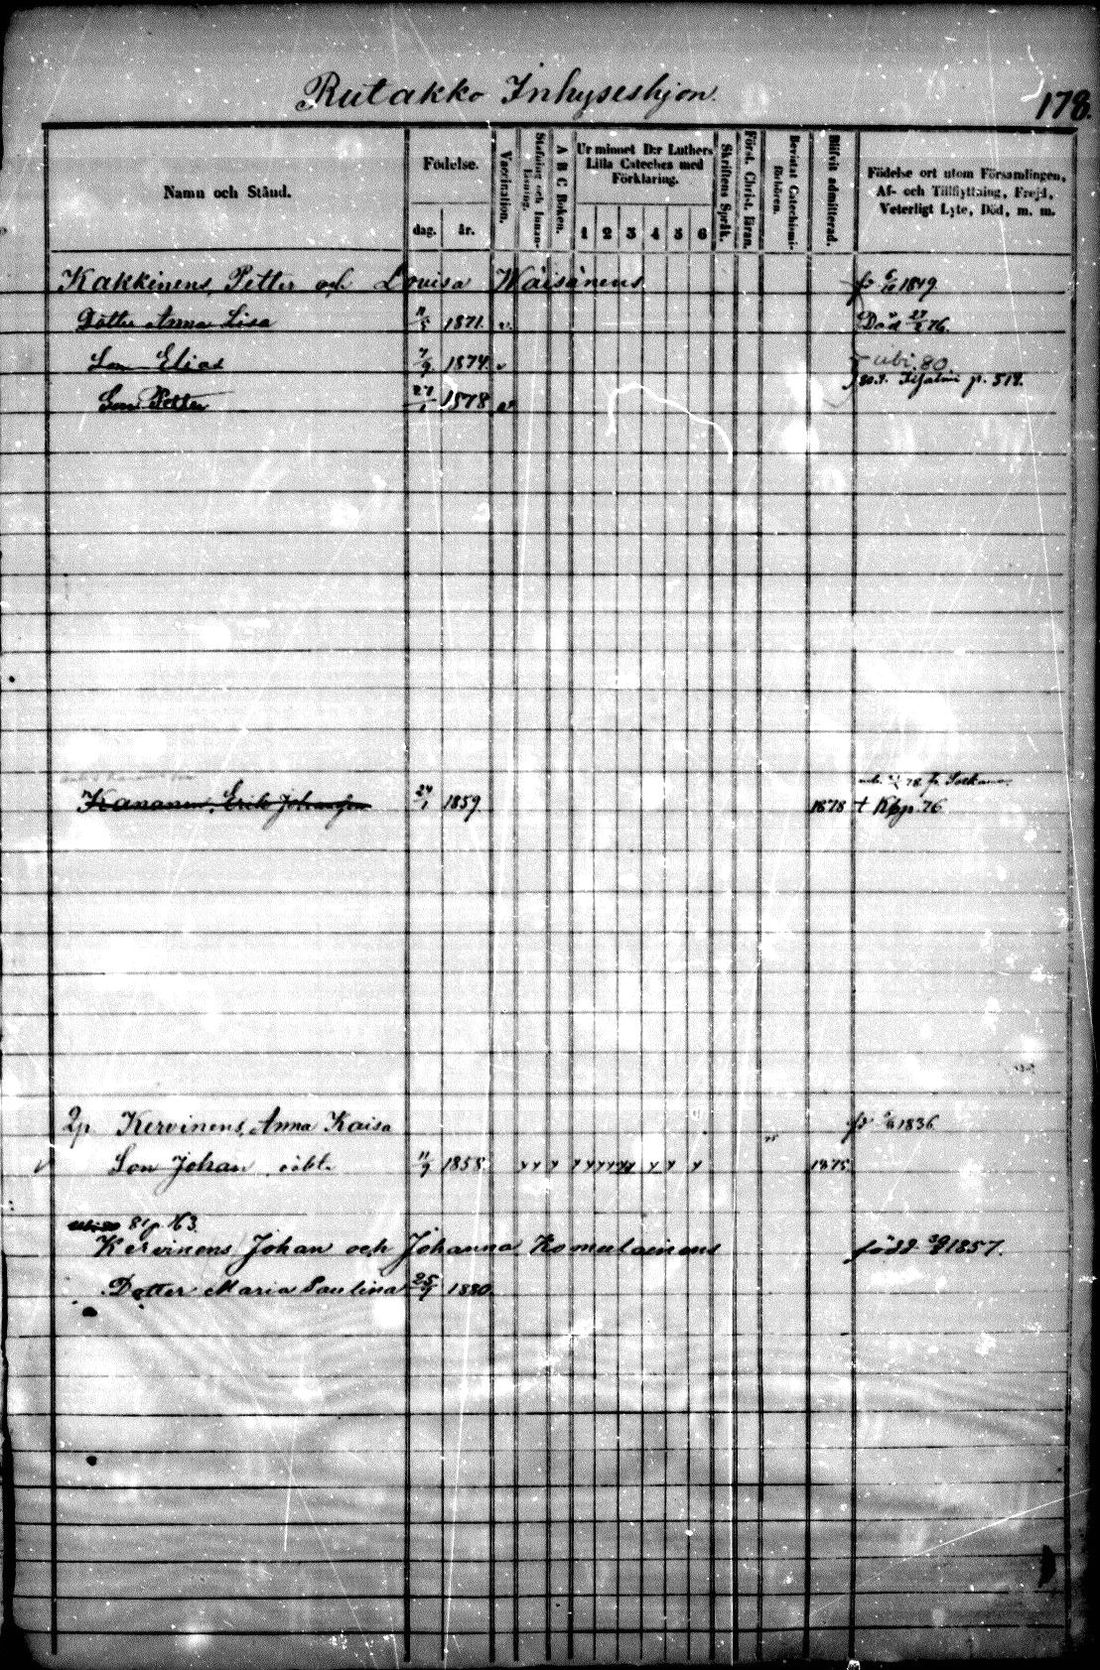 Rutakko Inhyseshjon.
178.
Namn och Stånd.
Födelse.
dag.
år.
Vaccination.
Stafning och Innan-läsning.
A B C Boken.
Ur minnet D:r Luthers Lilla Cateches med Förklaring.
1 2 3 4 5 6
Skriftens Språk.
Först. Christ. läran.
Bevistat Catechismi-förhören.
Blifvit admitterad.
Födelse ort utom Församlingen,
Af- och Tillflyttning, Frejd,
Veterligt Lyte, Död, m. m.
Kakkinens, Petter och Lovisa Wäisänens 1849
Dotter Anna Lisa 1871. v. Död 27 76.
Son Elias 7/9 1874. v ubi 80
Son Petter 27/1 1878 p. 519.
78. fr.
Kananen, Erik Johansson 24/1 1859. 1878 76
2p Kervinens, Anna Kaisa 1836
Son Johan 11/9 1858 1875
81 p. 163.
Kervinens Johan och Johanna Komulainens född 1857.
Dotter Maria Paulina 25/9 1880.